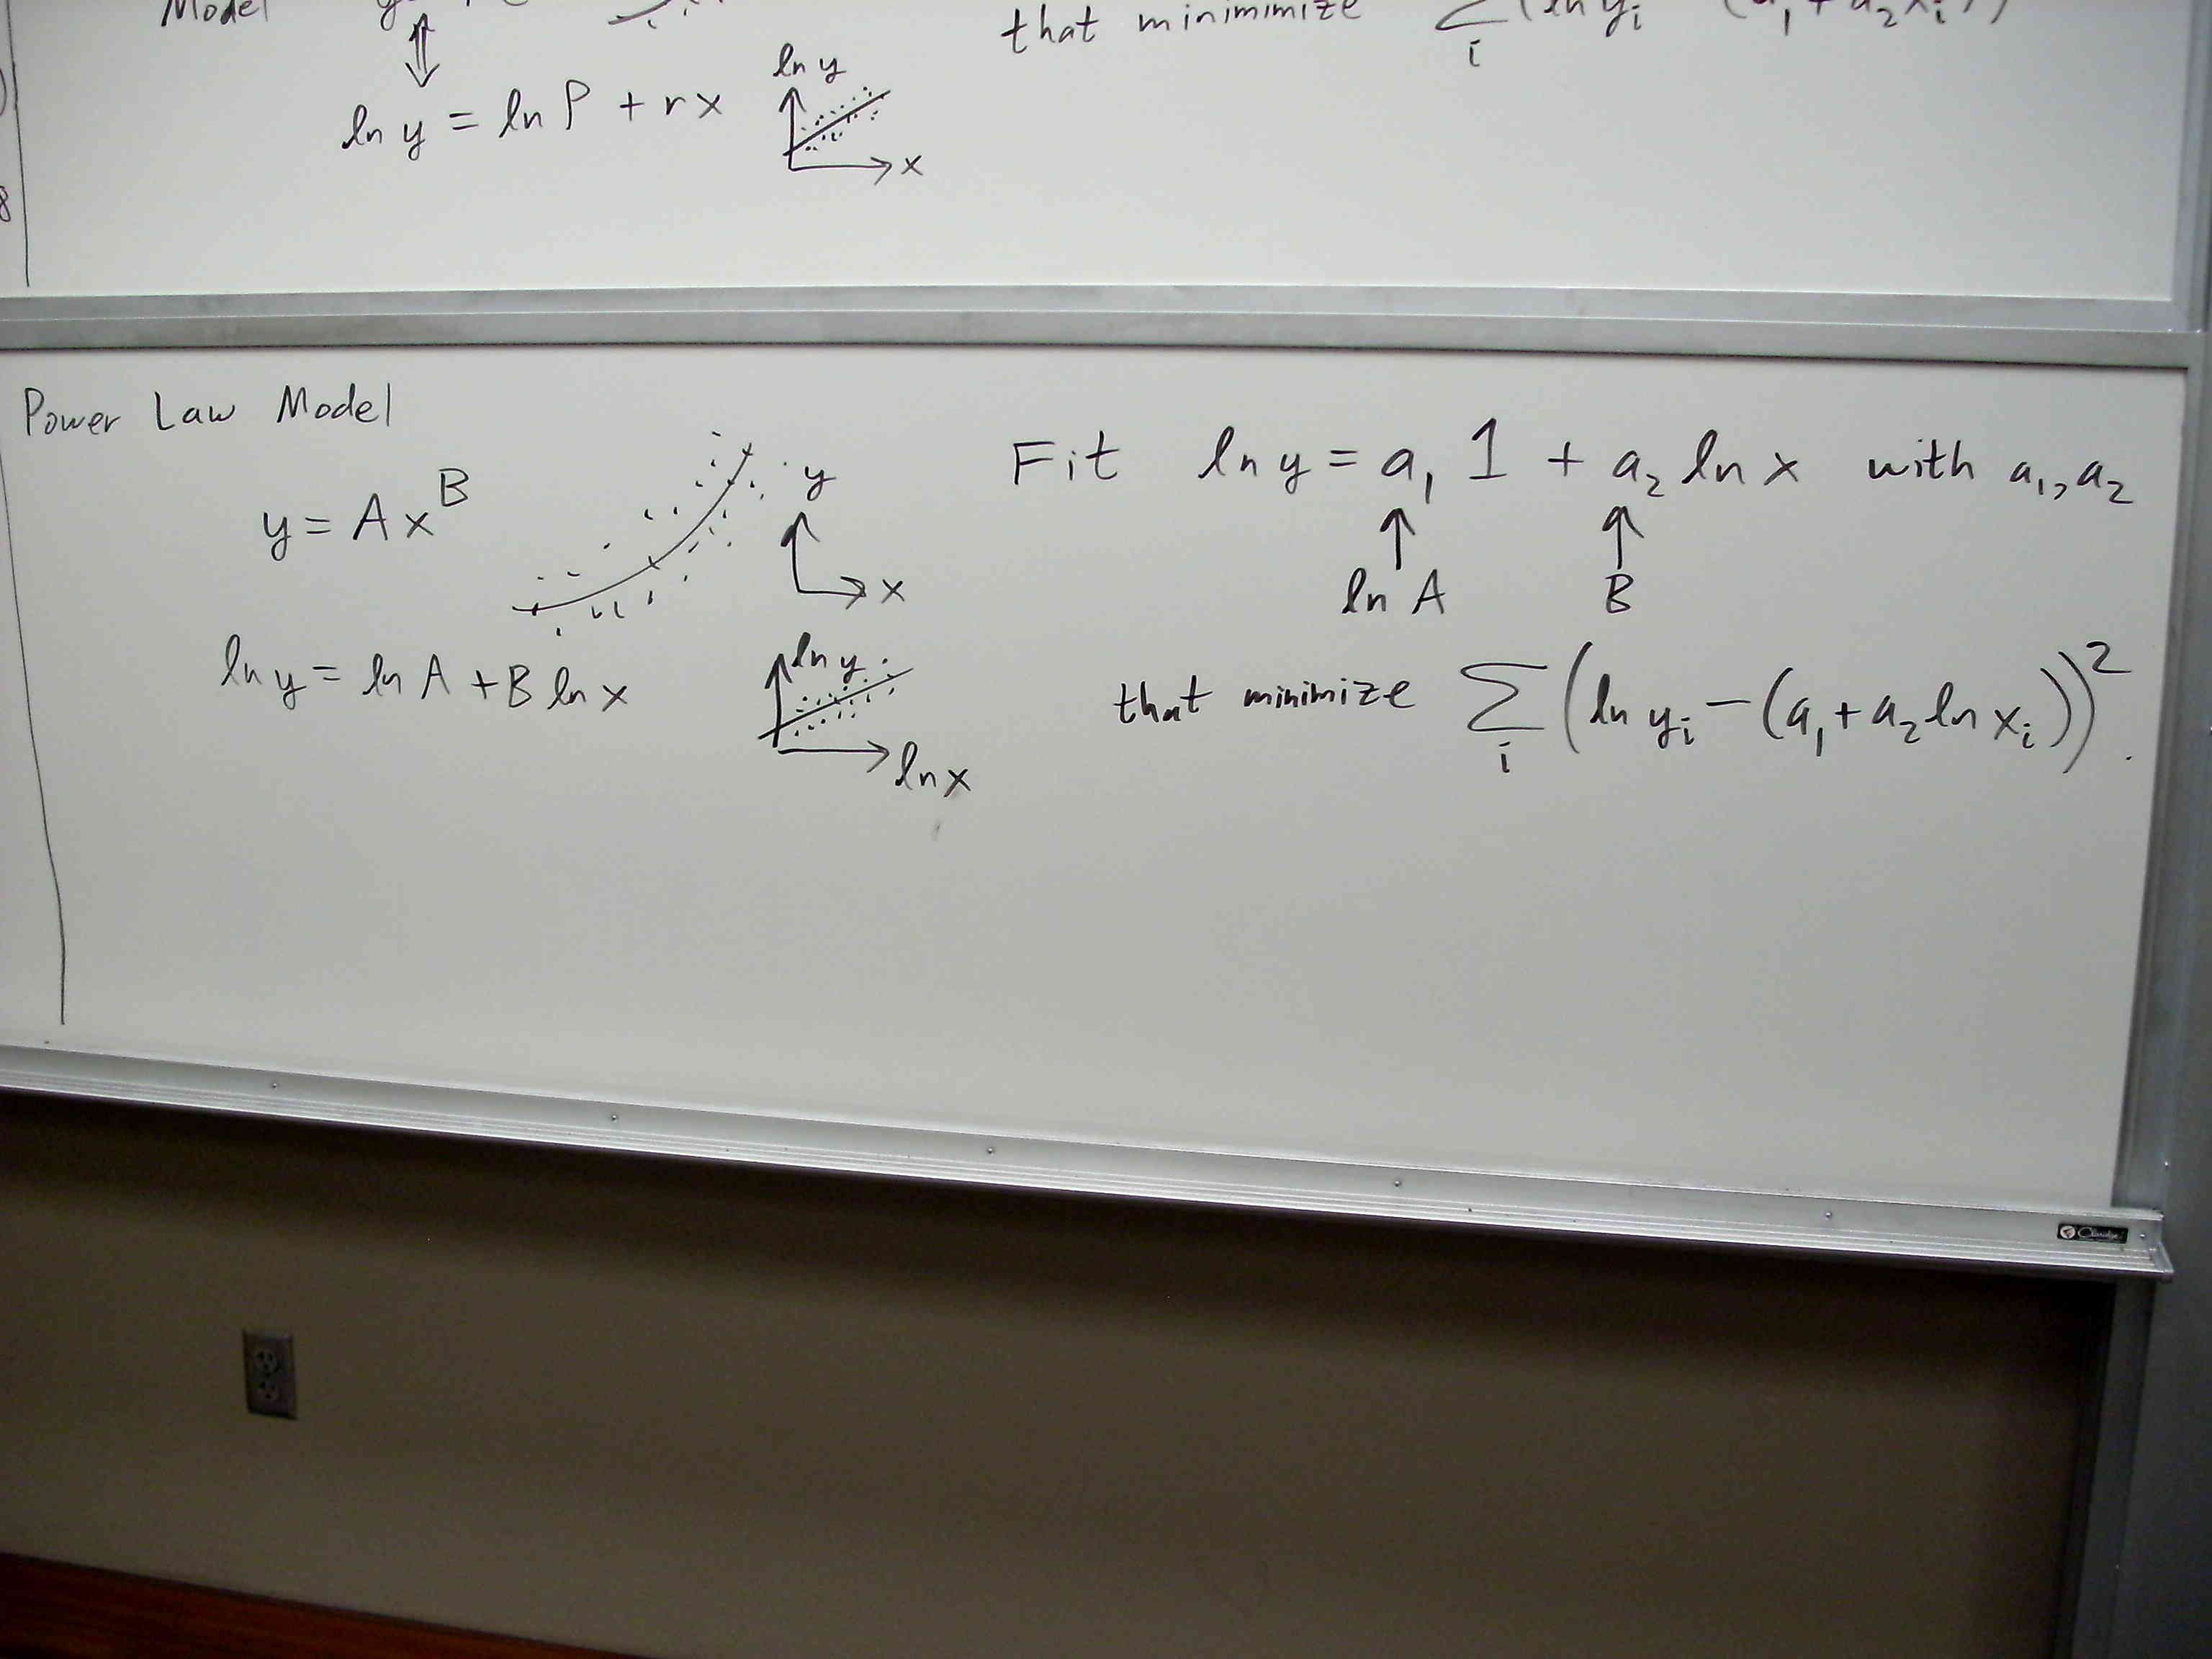 Model
that minimimize Σ i (ln yᵢ (a₁ + a₂ xᵢ))
ln y = ln P + r x
ln y
x
Power Law Model
y = A x^B
y
x
ln y = ln A + B ln x
ln y
ln x
Fit ln y = a₁ 1 + a₂ ln x with a₁, a₂
ln A B
that minimize Σ i (ln yᵢ − (a₁ + a₂ ln xᵢ))².
Claridge